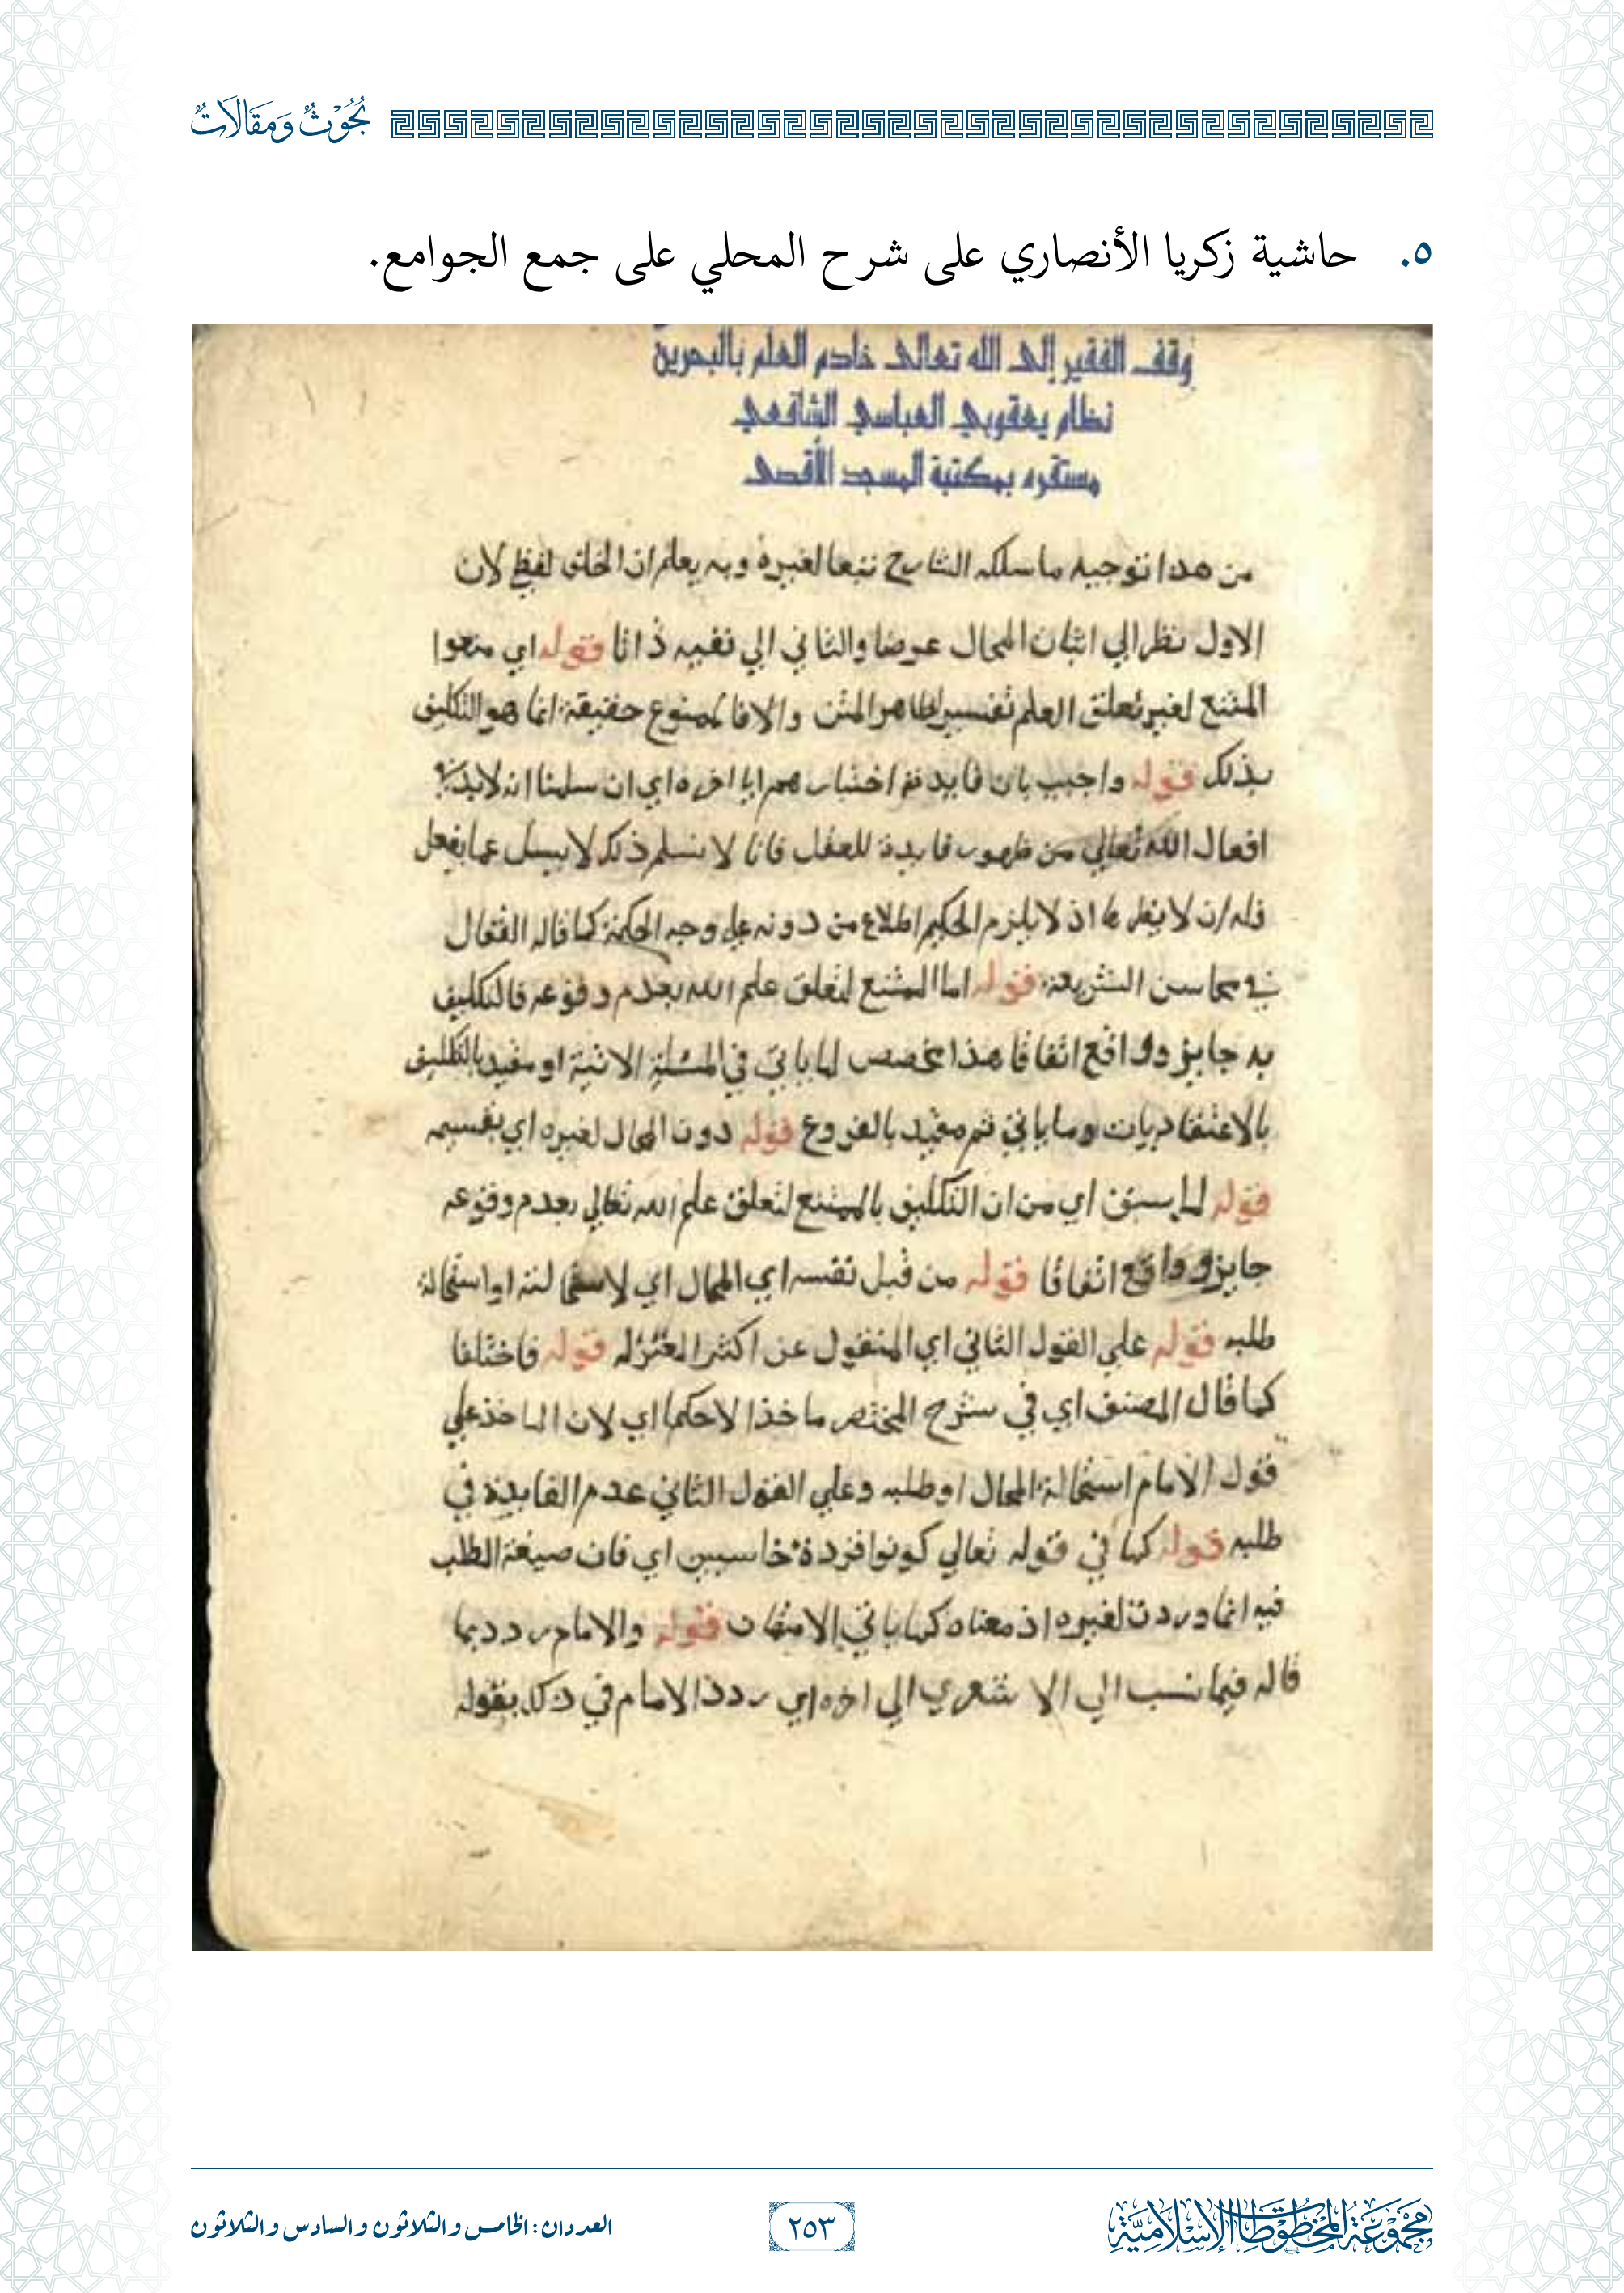 بُحُوثٌ وَمَقَالَاتٌ
٥. حاشية زكريا الأنصاري على شرح المحلي على جمع الجوامع.
وقف الفقير إلى الله تعالى خادم العلم بالبحرين
نظام يعقوبي العباسي الشافعي
مستقره بمكتبة المسجد الأقصى
من هذا توجيه ما سلكه الشارح تبعا لغيره وبه يعلم ان الخلاف لفظي لان
الاول نظر الي اتيان المحال عرضا والثاني الي نفيه ذاتا قوله اي منعوا
الممتنع لغير تعلق العلم تفسير لظاهر المتن والا فالممنوع حقيقة انما هو التكليف
بذلك قوله واجيب بان فايدته اختبارهم الي اخره اي ان سلمنا انه لابد في
افعال الله تعالي من ظهور فايدة للعقل فانا لا نسلم ذلك لا يسيل عما يفعل
فله ان لا يظهرها اذ لا يلزم الحكيم اطلاع من دونه علي وجه الحكمة كما قاله القفال
في محاسن الشريعة قوله اما الممتنع لتعلق علم الله بعدم وقوعه فالتكليف
به جايز وواقع اتفاقا هذا مخصص لما ياتي في المسئلة الاتية او مقيد بالتكليف
بالاعتقاديات وما ياتي ثم مقيد بالفروع قوله دون المحال لغيره اي بقسميه
قوله لما سبق اي من ان التكليف بالممتنع لتعلق علم الله تعالي بعدم وقوعه
جايز وواقع اتفاقا قوله من قبل نفسه اي المحال اي لاستحالته او استحالة
طلبه قوله علي القول الثاني اي المنقول عن اكثر المعتزله قوله فاختلفا
كما قال المصنف اي في شرح المختصر ماخذا لا حكما اي لان الماخذ علي
قول الامام استحالة المحال او طلبه وعلي القول الثاني عدم الفايدة في
طلبه قوله كما في قوله تعالي كونوا قردة خاسيين اي فان صيغة الطلب
فيه انما وردت لغيره اذ معناه كما ياتي الامتهان قوله والامام ردد بما
قاله فيما نسب الي الاشعري الي اخره اي ردد الامام في ذلك بقوله
مجموعة المخطوطات الإسلامية
٢٥٣
العددان: الخامس والثلاثون والسادس والثلاثون